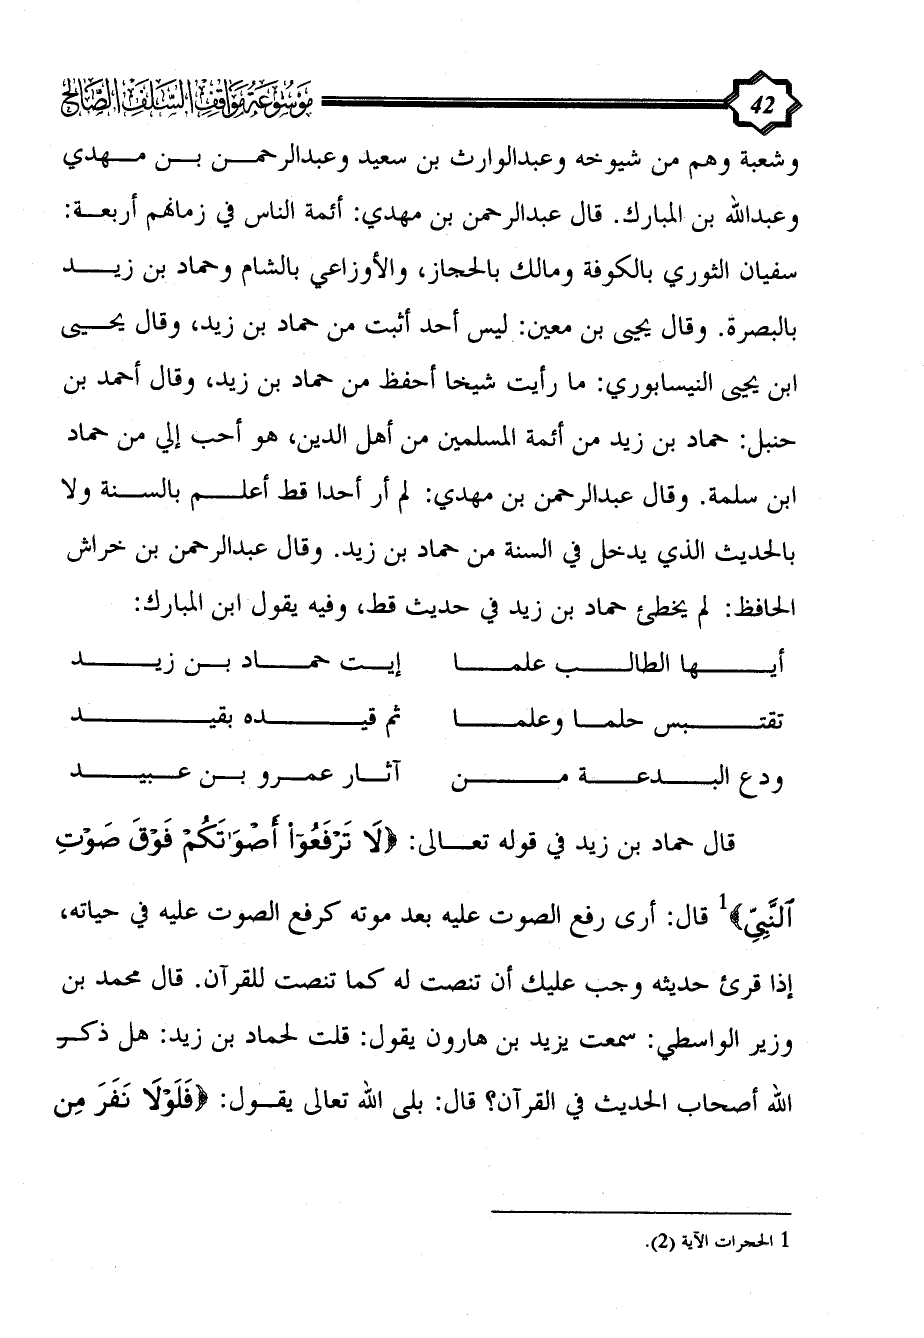 42 موسوعة مواقف السلف الصالح
وشعبة وهم من شيوخه وعبدالوارث بن سعيد وعبدالرحمن بن مهدي
وعبدالله بن المبارك. قال عبدالرحمن بن مهدي: أئمة الناس في زمانهم أربعة:
سفيان الثوري بالكوفة ومالك بالحجاز، والأوزاعي بالشام وحماد بن زيد
بالبصرة. وقال يحيى بن معين: ليس أحد أثبت من حماد بن زيد، وقال يحيى
ابن يحيى النيسابوري: ما رأيت شيخا أحفظ من حماد بن زيد، وقال أحمد بن
حنبل: حماد بن زيد من أئمة المسلمين من أهل الدين، هو أحب إلي من حماد
ابن سلمة. وقال عبدالرحمن بن مهدي: لم أر أحدا قط أعلم بالسنة ولا
بالحديث الذي يدخل في السنة من حماد بن زيد. وقال عبدالرحمن بن خراش
الحافظ: لم يخطئ حماد بن زيد في حديث قط، وفيه يقول ابن المبارك:
أيها الطالب علما إيت حماد بن زيد
تقتبس حلما وعلما ثم قيده بقيد
ودع البدعة من آثار عمرو بن عبيد
قال حماد بن زيد في قوله تعالى: ﴿لَا تَرْفَعُوٓا۟ أَصْوَٰتَكُمْ فَوْقَ صَوْتِ
ٱلنَّبِيِّ﴾1 قال: أرى رفع الصوت عليه بعد موته كرفع الصوت عليه في حياته،
إذا قرئ حديثه وجب عليك أن تنصت له كما تنصت للقرآن. قال محمد بن
وزير الواسطي: سمعت يزيد بن هارون يقول: قلت لحماد بن زيد: هل ذكر
الله أصحاب الحديث في القرآن؟ قال: بلى الله تعالى يقول: ﴿فَلَوْلَا نَفَرَ مِن
1 الحجرات الآية (2).